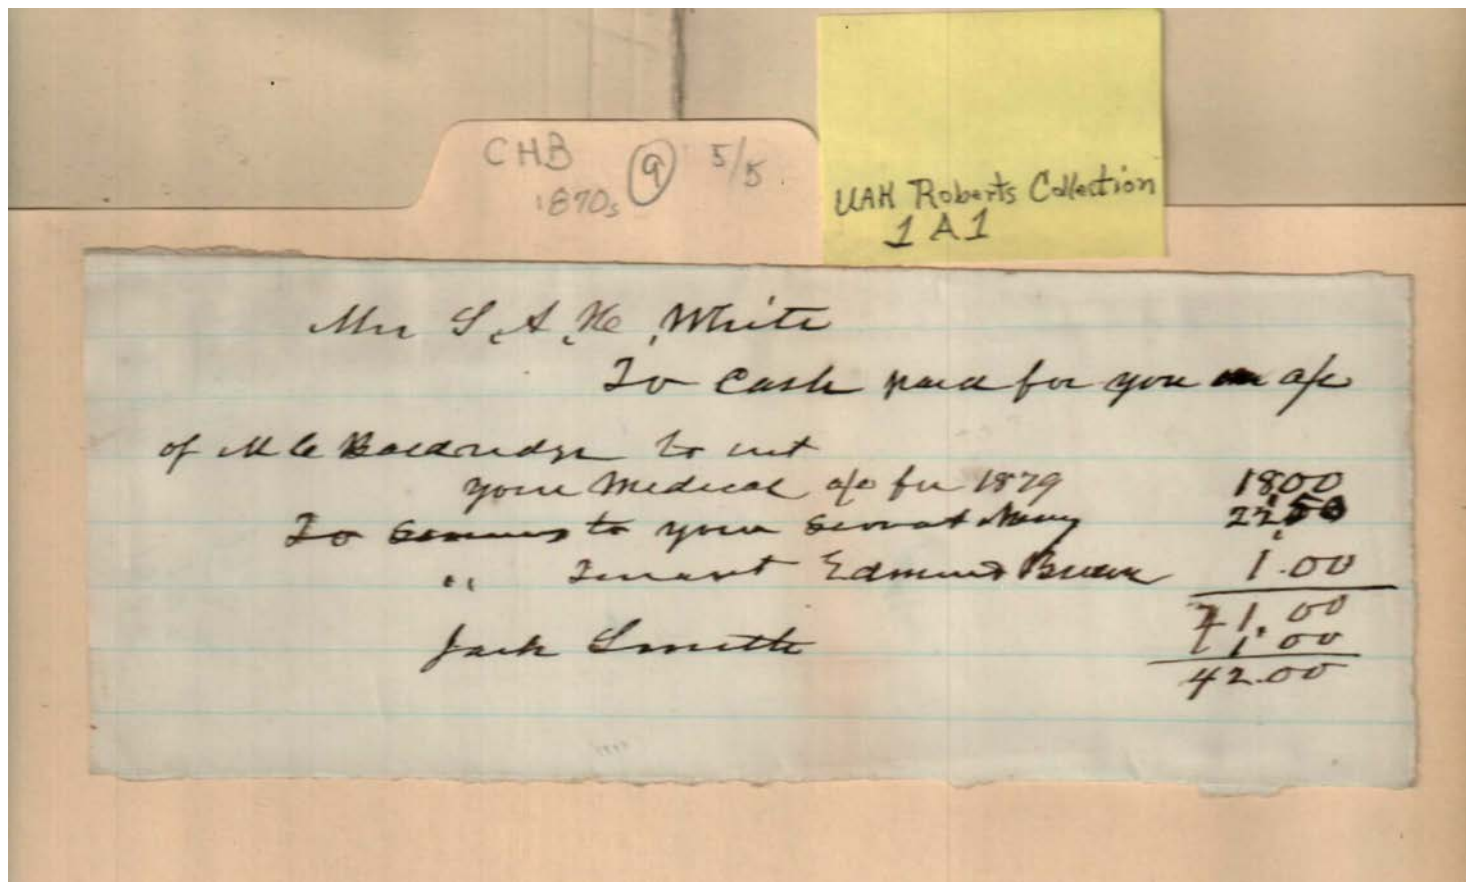 CHB 9 5/5
1870s
UAH Roberts Collection
1 A 1
Mrs S. A. H. White
To Cash paid for you a/c
of M C Baldridge to
your Medical a/c for 1879 18.00
To to your Servant Mary 22.50
" Servant Edmund 1.00
41.00
Jack Smith 1.00
42.00